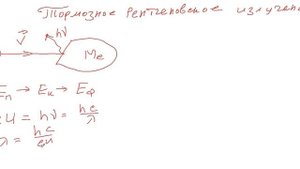 Тормозное рентгеновское излучен
hν
V⃗
Me
Eп → Eк → Eф
eU = hν = hc/λ
λ = hc/eU